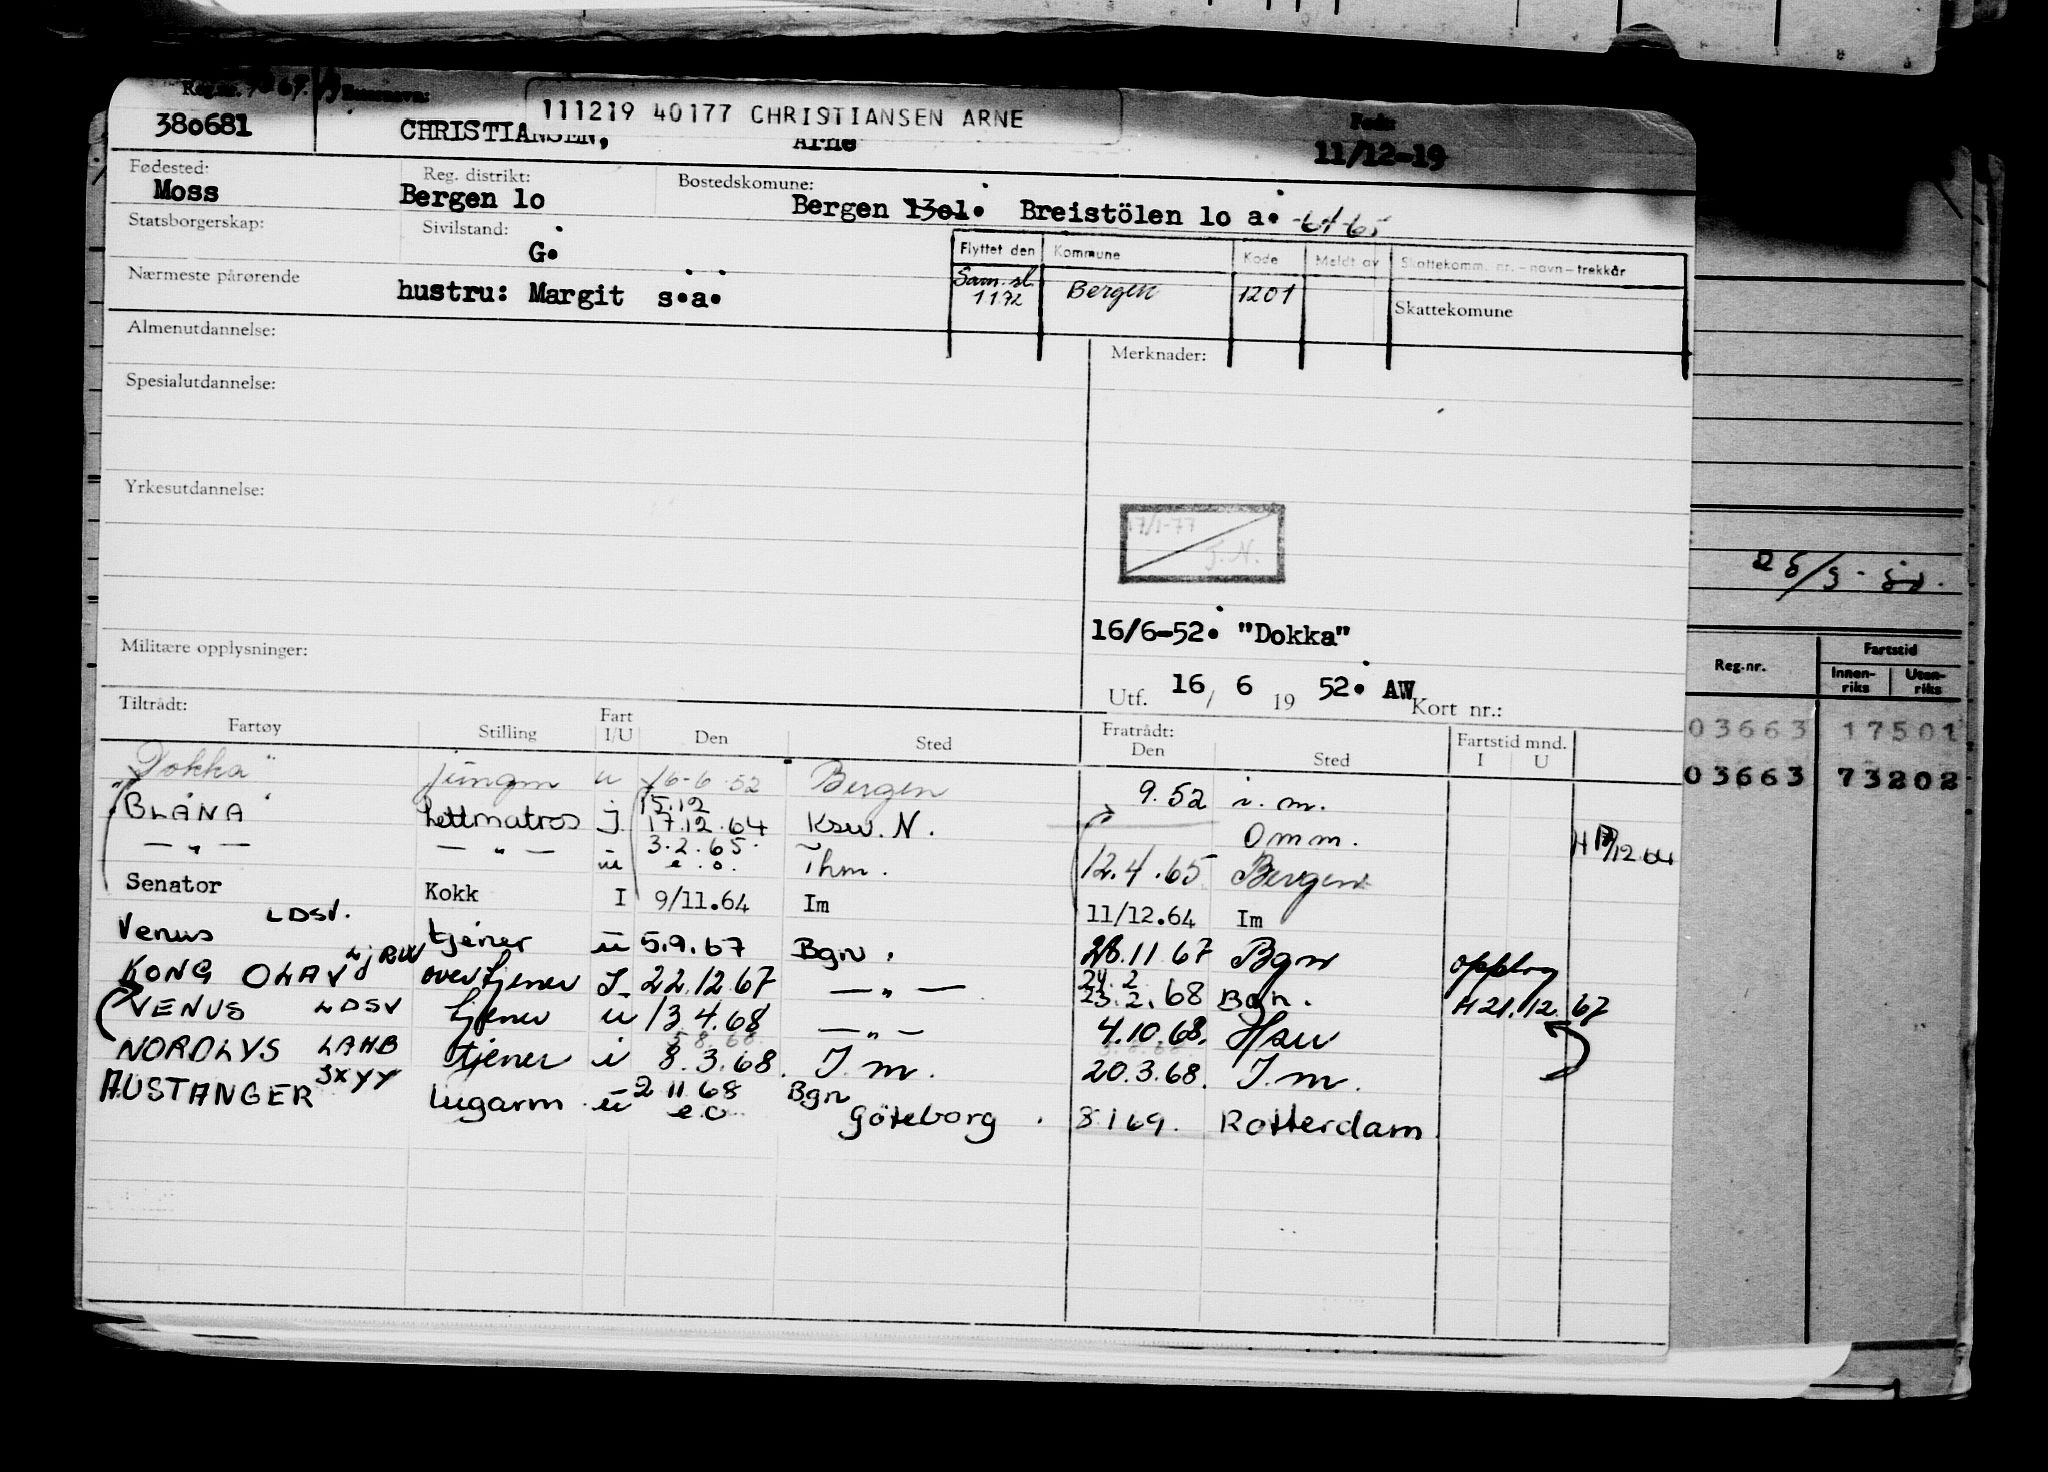 Reg.nr.
111219 40177 CHRISTIANSEN ARNE
38o681 CHRISTIANSEN, Arne 11/12-19
Fødested: Reg. distrikt: Bostedskomune:
Moss Bergen lo Bergen 13ol. Breistölen lo a. -64-65
Statsborgerskap: Sivilstand:
G.
Flyttet den Kommune Kode Meldt av Skattekomm. nr.-navn-trekkår
Nærmeste pårørende hustru: Margit s.a.
Sam.sl. 1 1 72 Bergen 1201 Skattekomune
Almenutdannelse: Merknader:
Spesialutdannelse:
Yrkesutdannelse:
17/1-77
J.N.
16/6-52. "Dokka"
Militære opplysninger:
Utf. 16/ 6 19 52. AW Kort nr.:
Tiltrådt: Fratrådt:
Fartøy Stilling Fart I/U Den Sted Den Sted Fartstid mnd. I U
"Dokka" jungm u 16-6-52 Bergen 9.52 i.m.
15.12
"BLÅNA" Lettmatros j 17.12.64 Ksu.N. Omm. H 17/12 64
3.2.65.
— " — — " — u e.o. Thm. 12.4.65 Bergen
Senator Kokk I 9/11.64 Im 11/12.64 Im
Venus LDSV. tjener u 5.9.67 Bgn. 28.11 67 Bgn opplag
24.2
KONG OLAV LJRW overtjener I 22.12.67 — " — 23.2.68 Bgn. H 21.12.67
VENUS LDSV tjener u 13 4.68 — " — 4.10.68. Hsu
NORDLYS LAHB tjener i 8.3.68. I.m. 20.3.68. I.m.
AUSTANGER JXYY lugarm u 2 11 68 Bgn
e.o. Göteborg. 8 1 69. Rotterdam
Reg.nr. Fartstid
Innen-riks Uten-riks
03663 17501
03663 73202